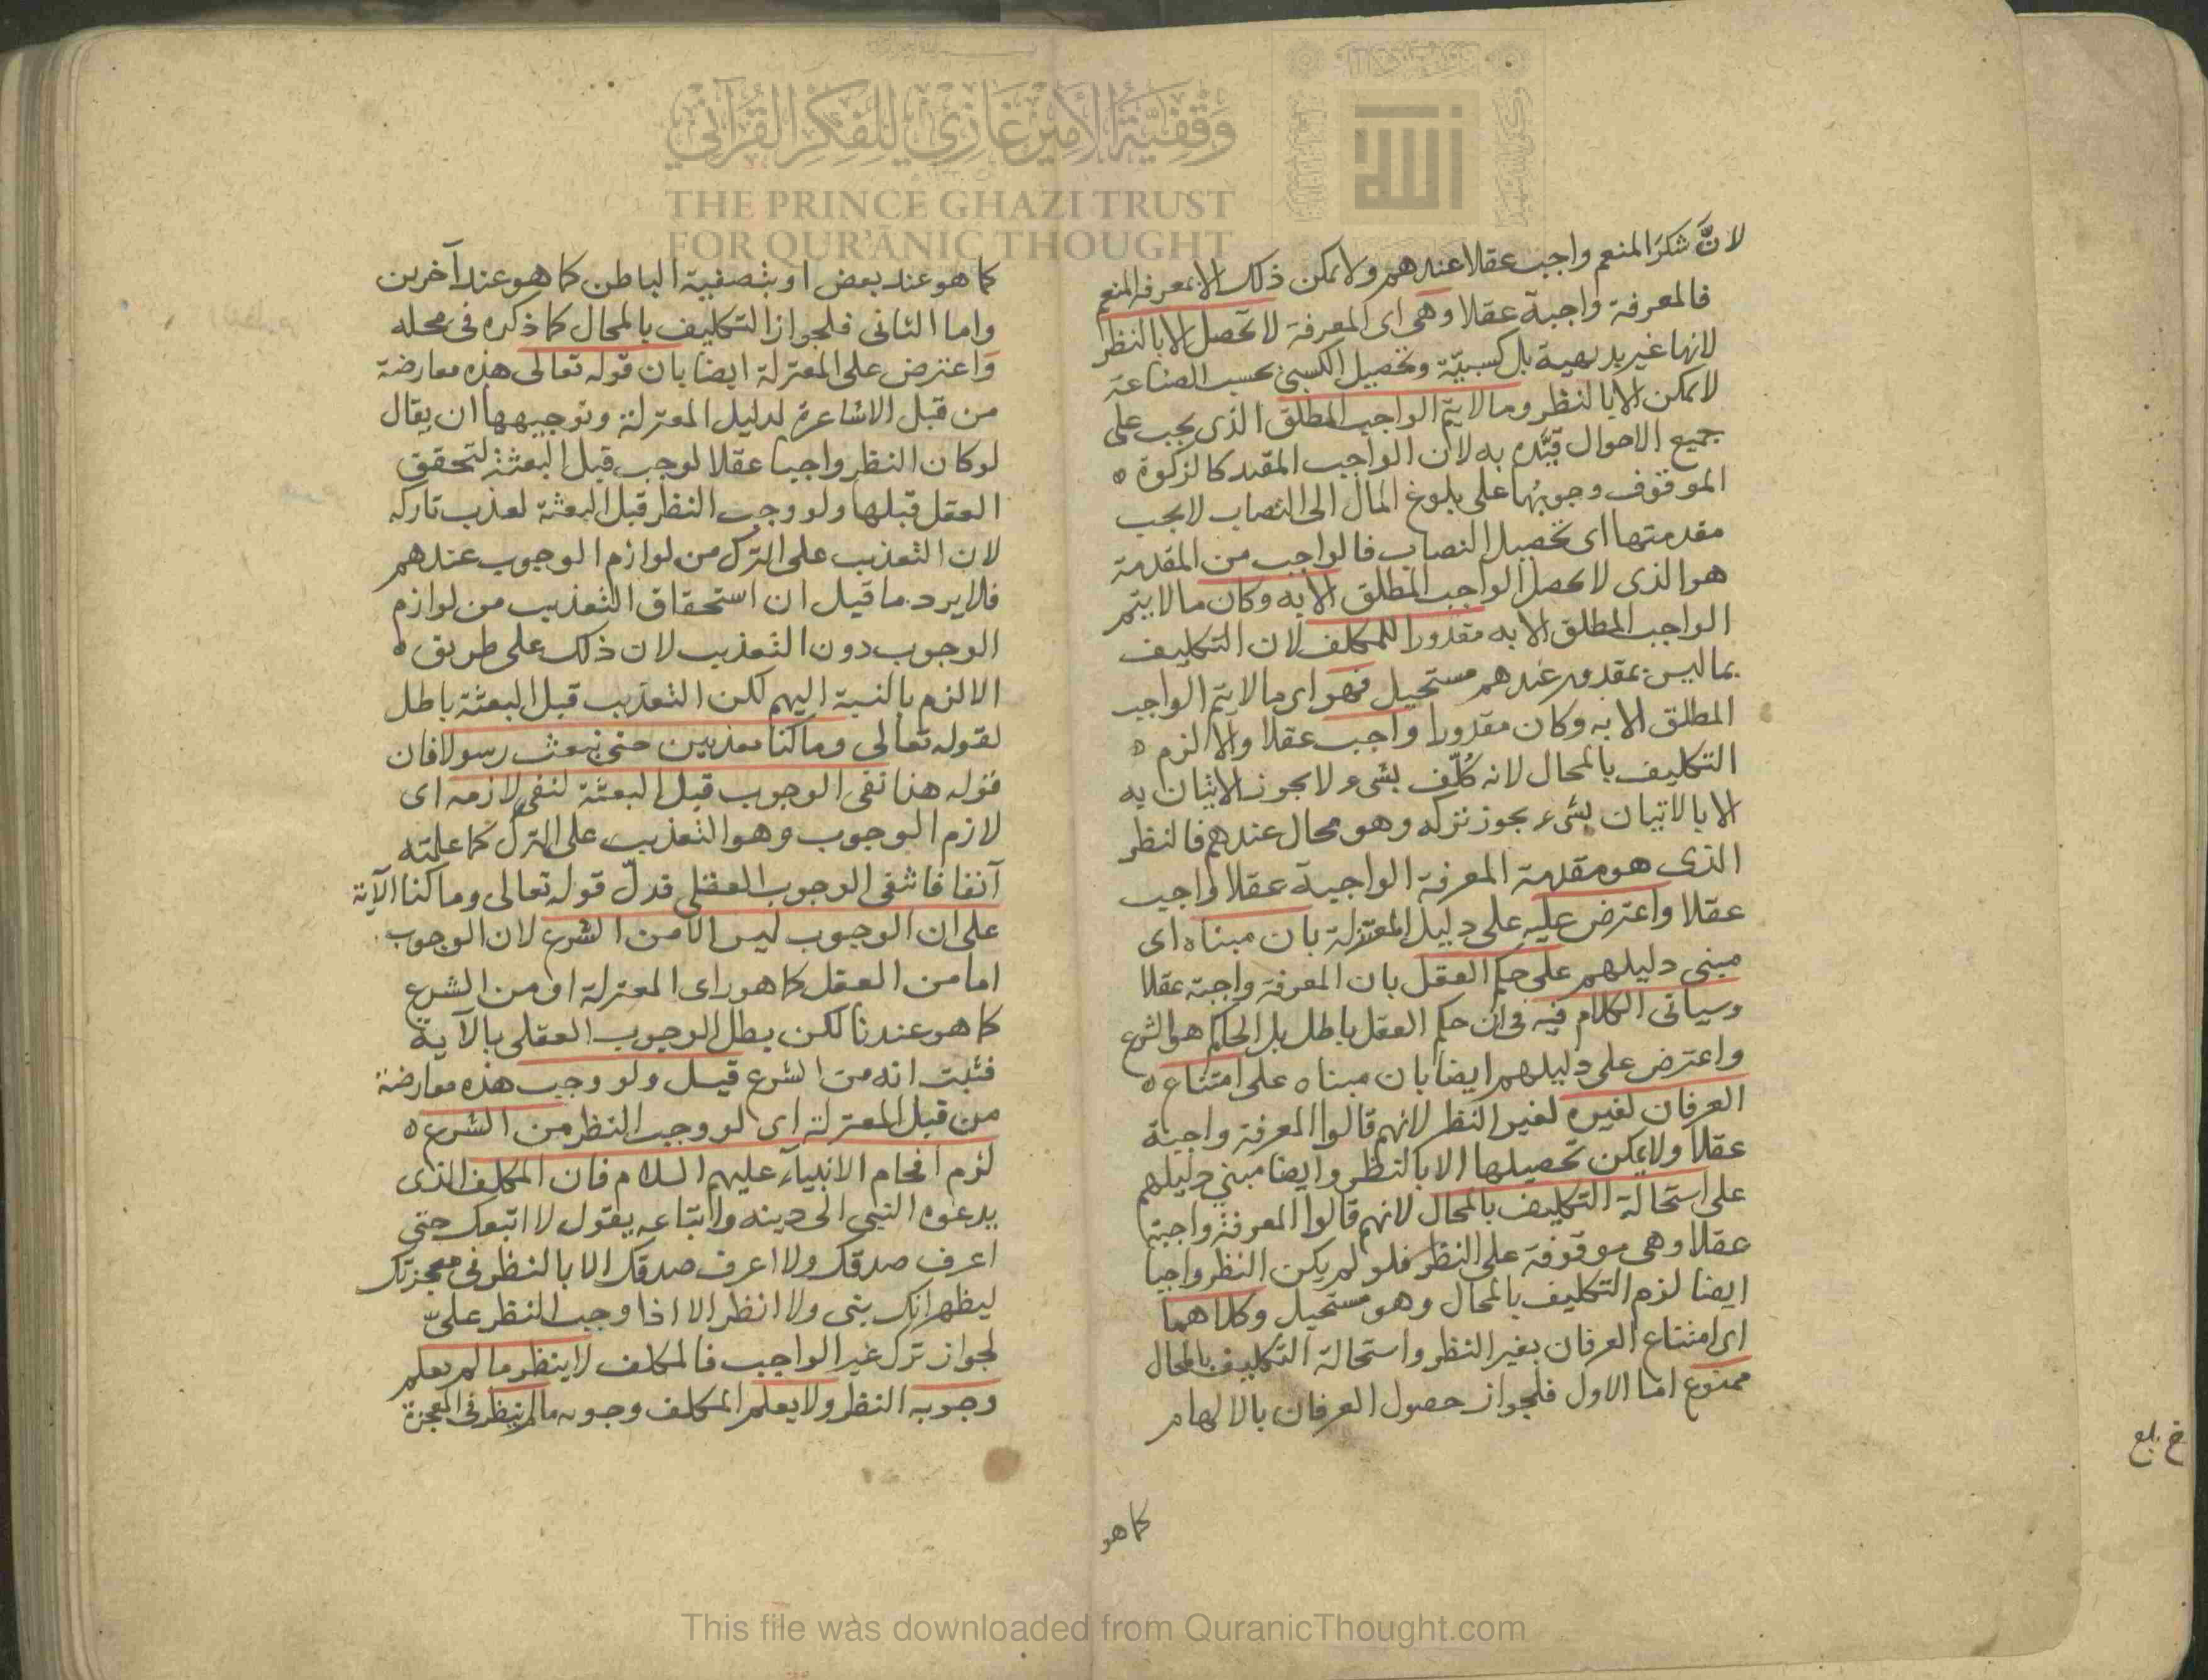 لانَّ شكرَ المنعم واجب عقلا عندهم ولا يمكن ذلك الا بمعرفة المنعم
فالمعرفة واجبة عقلا وهى اى المعرفة لا تحصل الا بالنظر
لانها غير بديهية بل كسبيّة وتحصيل الكسبى بحسب الصناعة
لا يمكن الا بالنظر وما لا يتمّ الواجب المطلق الذى يجب على
جميع الاحوال قيّده به لان الواجب المقيد كالزكوة ه
الموقوف وجوبُها على بلوغ المال الى النصاب لا يجب
مقدمتها اى تحصيل النصاب فالواجب من المقدمة
هو الذى لا يحصل الواجب المطلق الا به وكان ما لا يتم
الواجب المطلق الا به مقدورا للمكلف لان التكليف
بما ليس بمقدور عندهم مستحيل فهو اى ما لا يتم الواجب
المطلق الا به وكان مقدورا واجب عقلا والا لزم ه
التكليف بالمحال لانه كُلّف بشىء لا يجوز الاتيان به
الا بالاتيان بشىء يجوز تركه وهو محال عندهم فالنظر
الذى هو مقدمة المعرفة الواجبة عقلا واجب
عقلا واعترض عليه على دليل المعتزلة بان مبناه اى
مبنى دليلهم على حكم العقل بان المعرفة واجبة عقلا
وسياتى الكلام فيه فى ان حكم العقل باطل بل الحاكم هو الشرع
واعترض على دليلهم ايضا بان مبناه على امتناع ه
العرفان لغيره لغير النظر لانهم قالوا المعرفة واجبة
عقلا ولا يمكن تحصيلها الا بالنظر وايضا مبنى دليلهم
على استحالة التكليف بالمحال لانهم قالوا المعرفة واجبة
عقلا وهى موقوفة على النظر فلو لم يكن النظر واجبا
ايضا لزم التكليف بالمحال وهو مستحيل وكلاهما
اى امتناع العرفان بغير النظر واستحالة التكليف بالمحال
ممنوع اما الاول فلجواز حصول العرفان بالالهام
كما هو
خ بلغ
كما هو عند بعض او بتصفية الباطن كما هو عند آخرين
واما الثانى فلجواز التكليف بالمحال كما ذكره فى محله
واعترض على المعتزلة ايضا بان قوله تعالى هذه معارضة
من قبل الاشاعرة لدليل المعتزلة وتوجيهها ان يقال
لو كان النظر واجبا عقلا لوجب قبل البعثة لتحقق
العقل قبلها ولو وجب النظر قبل البعثة لعذب تاركه
لان التعذيب على الترك من لوازم الوجوب عندهم
فلا يرد ما قيل ان استحقاق التعذيب من لوازم
الوجوب دون التعذيب لان ذلك على طريق ه
الالزم بالنسبة اليهم لكن التعذيب قبل البعثة باطل
لقوله تعالى وما كنا معذبين حتى نبعث رسولا فان
قوله هذا نفى الوجوب قبل البعثة لنفى لازمه اى
لازم الوجوب وهو التعذيب على الترك كما علمته
آنفا فانتفى الوجوب العقلى فدلّ قوله تعالى وما كنا الآية
على ان الوجوب ليس الا من الشرع لان الوجوب
اما من العقل كما هو راى المعتزلة او من الشرع
كما هو عندنا لكن بطل الوجوب العقلى بالآية
فثبت انه من الشرع قيل ولو وجب هذه معارضة
من قبل المعتزلة اى لو وجب النظر من الشرع ه
لزم افحام الانبياء عليهم السلام فان المكلف الذى
يدعوه النبى الى دينه واتباعه يقول لا اتبعك حتى
اعرف صدقك ولا اعرف صدقك الا بالنظر فى معجزتك
ليظهر انك بنى ولا انظر الا اذا وجب النظر علىّ
لجواز ترك غير الواجب فالمكلف لا ينظر ما لم يعلم
وجوبه النظر ولا يعلم المكلف وجوبه ما لم ينظر فى المعجزة
وقفية الأمير غازي للفكر القرآني
THE PRINCE GHAZI TRUST
FOR QUR'ĀNIC THOUGHT
الله
This file was downloaded from QuranicThought.com